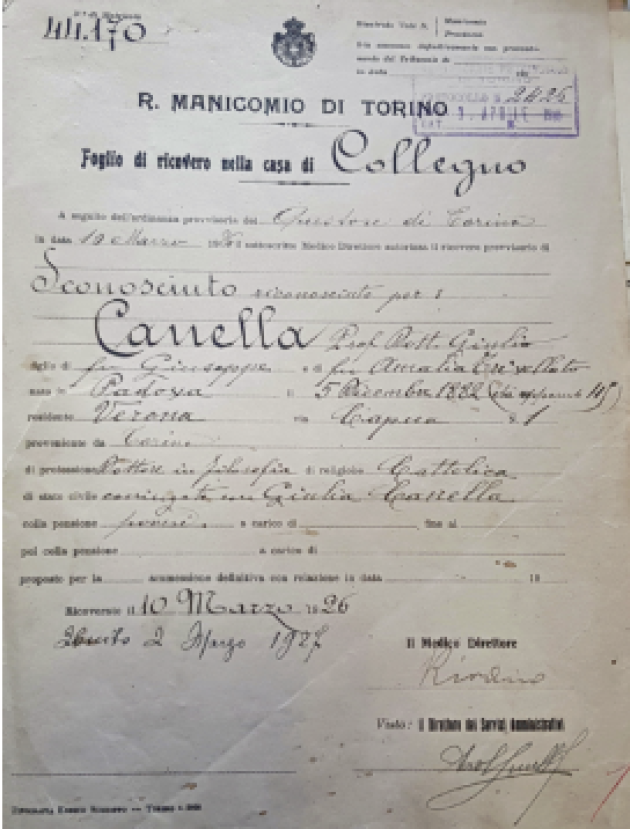 44.170
Manicomio
in data
2426
APRILE
R. MANICOMIO DI TORINO
Foglio di ricovero nella casa di Collegno
A seguito dell'ordinanza provvisoria del Questore di Torino
in data 10 Marzo 1926 il sottoscritto Medico Direttore autorizza il ricovero provvisorio di
Sconosciuto riconosciuto per:
Canella Prof. Dott. Giulio
figlio di fu Giuseppe e di fu Amalia
nato in Padova il 5 Dicembre 1882
residente Verona via Capua N 1
proveniente da Torino
di professione Dottore in filosofia di religione Cattolica
di stato civile coniugato con Giulia Canella
colla pensione poveri a carico di fino al
poi colla pensione a carico di
proposto per la ammissione definitiva con relazione in data 19
Ricoverato il 10 Marzo 1926
2 Marzo 1927
Il Medico Direttore
Visto: Il Direttore dei Servizi Amministrativi